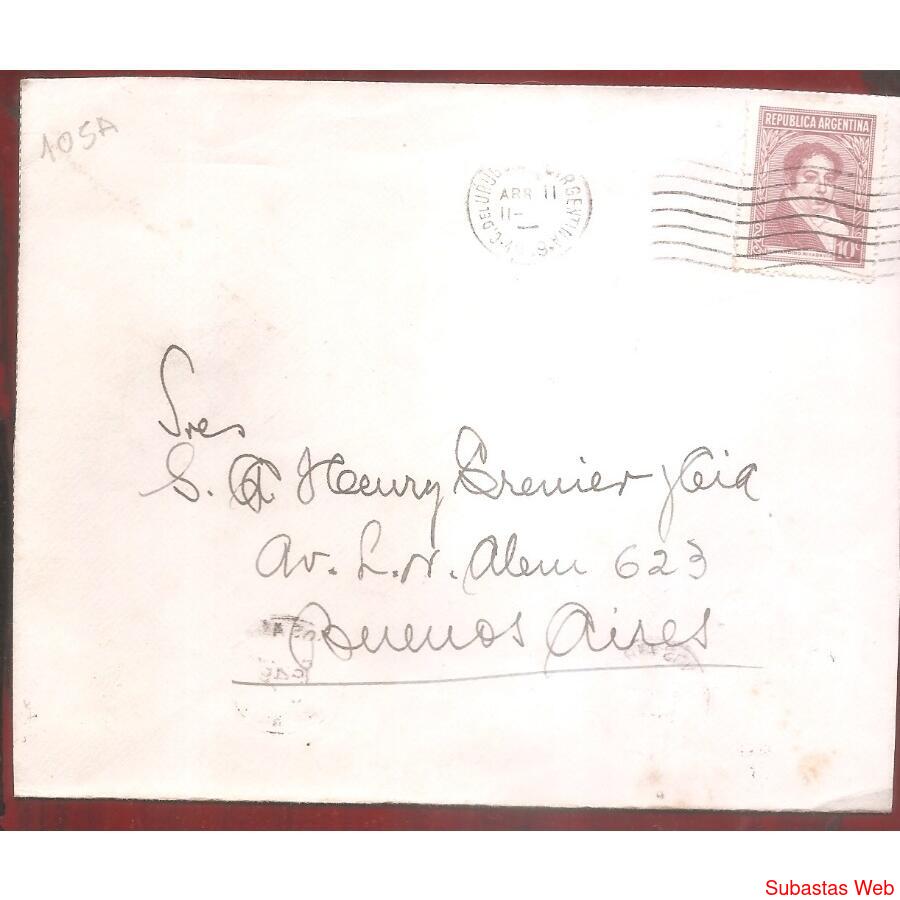 105A
REPUBLICA ARGENTINA
10c
ABR 11
11-
Sres
S. A Henry Grenier y Cia
Av. L. N. Alem 623
Buenos Aires
Subastas Web